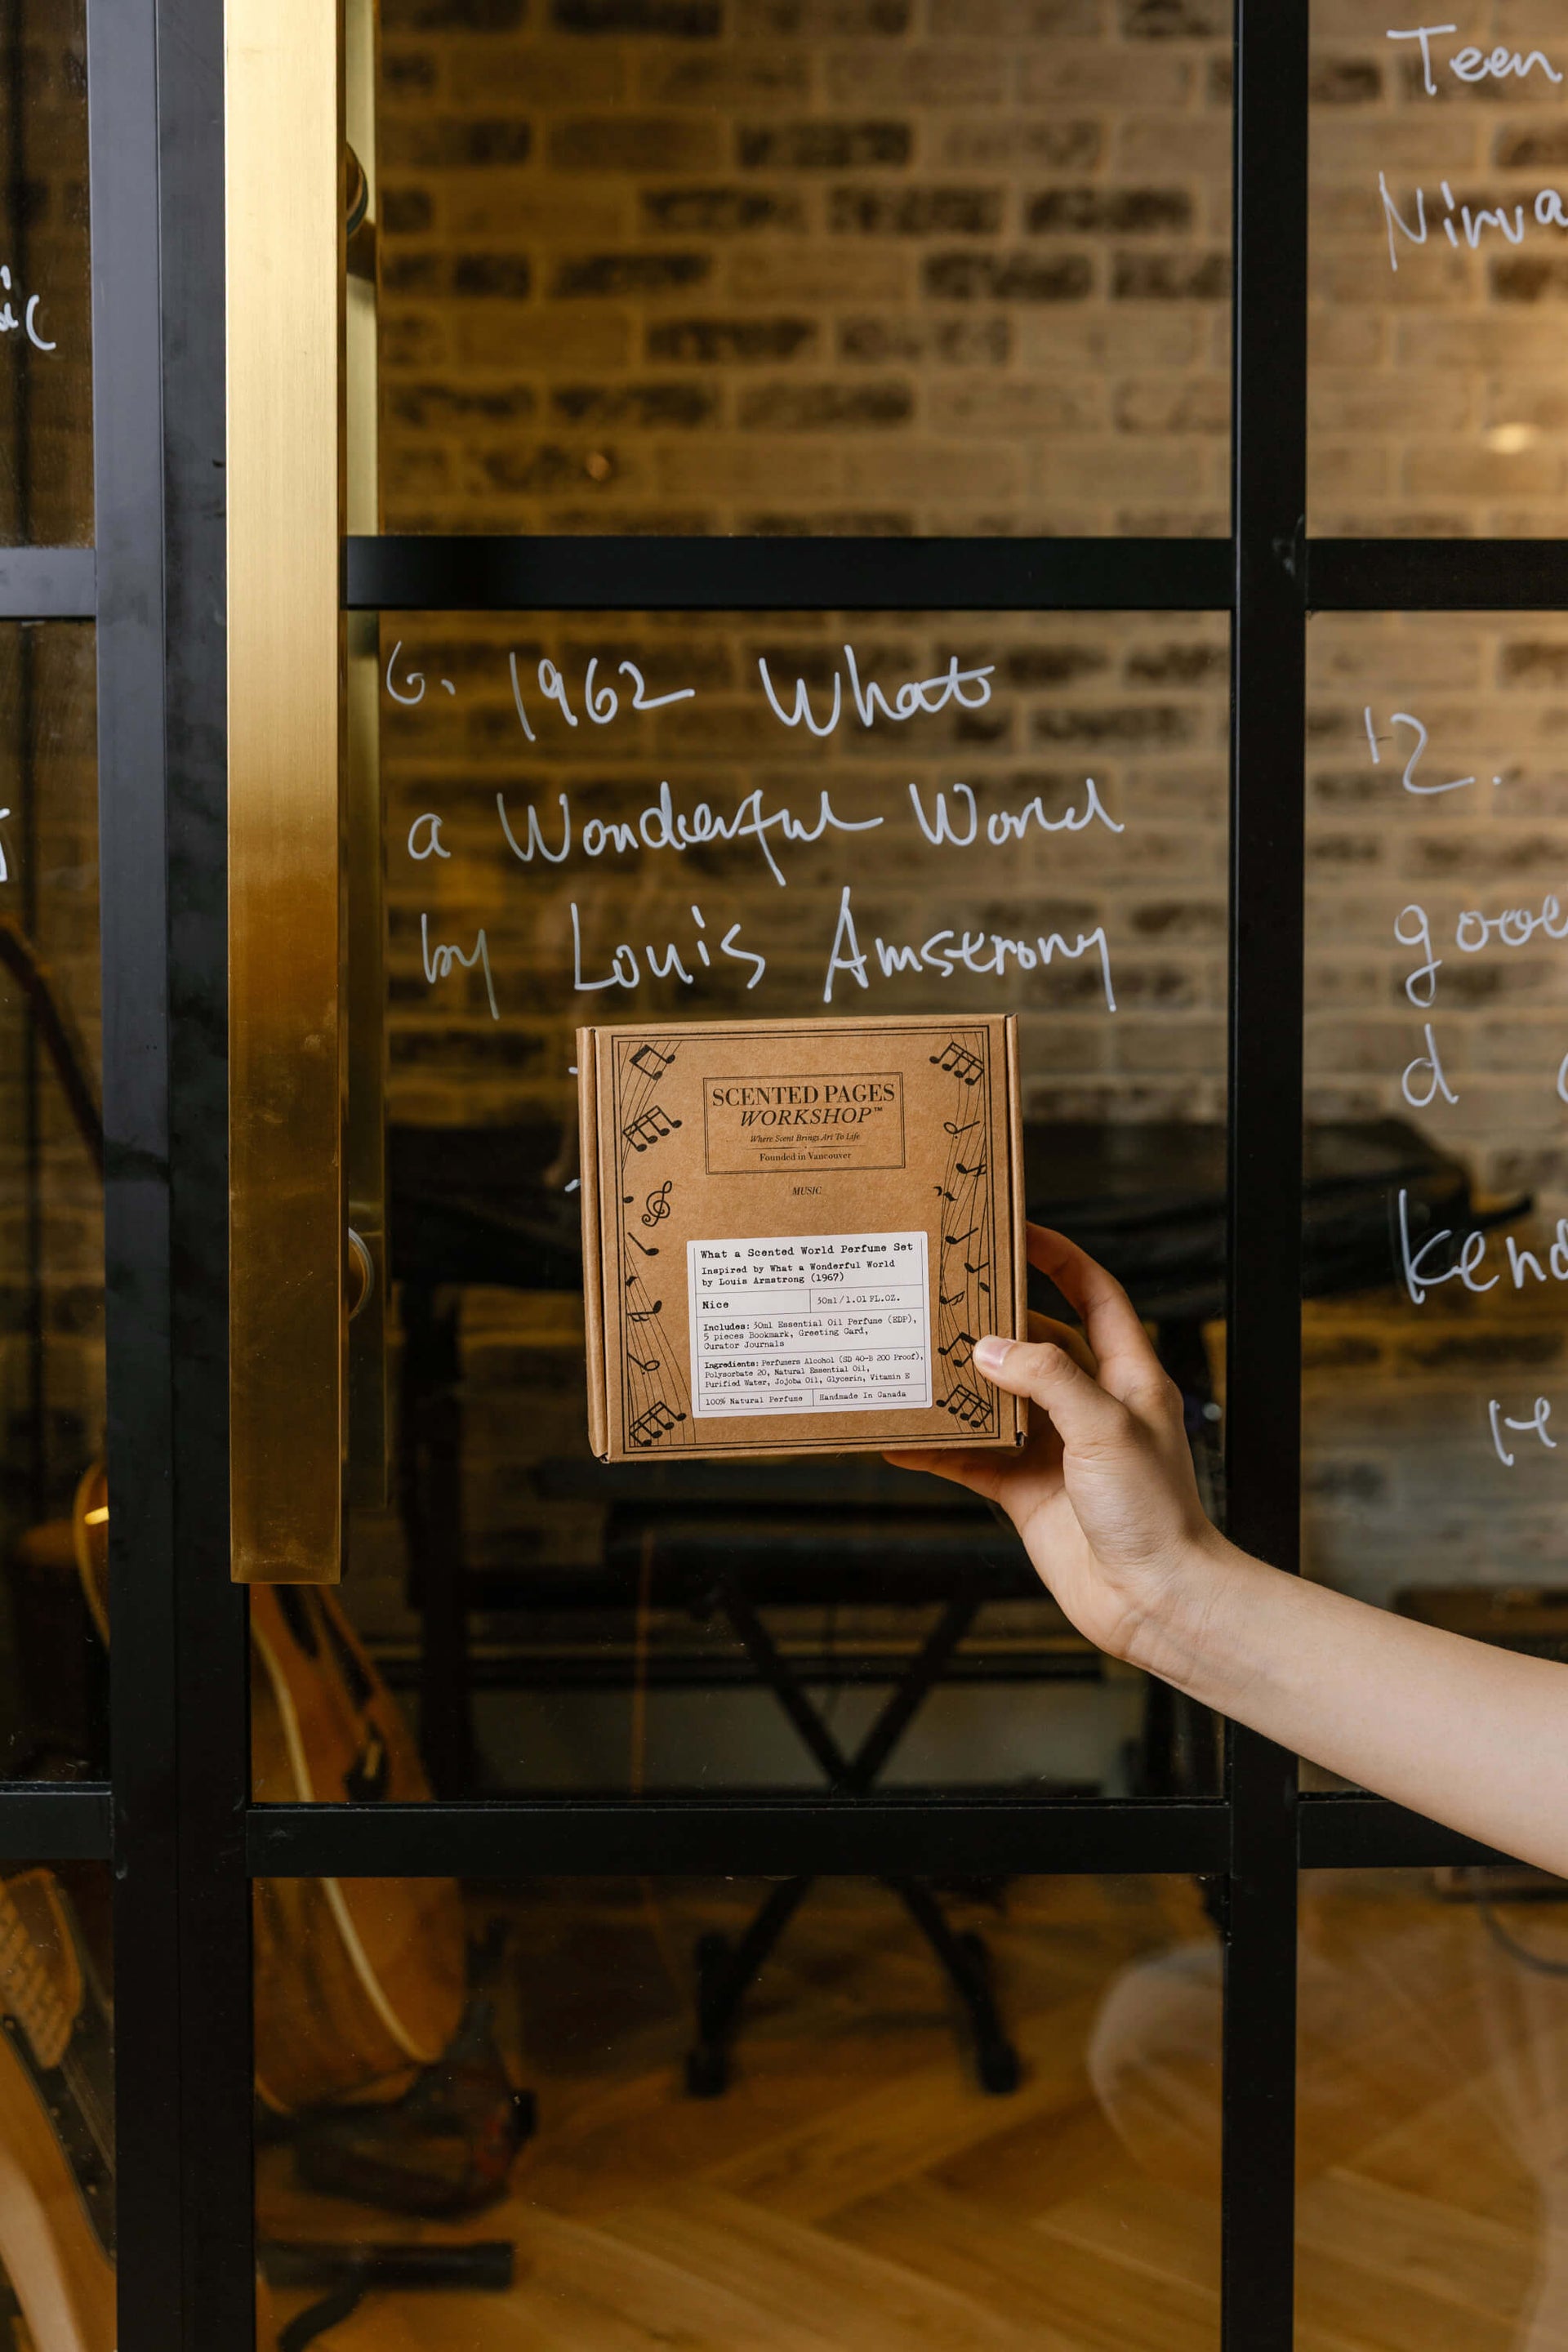 6. 1962 What
a Wonderful World
by Louis Amstrong
Teen
Nirva
12.
good
d
Kend
SCENTED PAGES
WORKSHOP™
Where Scent Brings Art To Life
Founded in Vancouver
MUSIC
What a Scented World Perfume Set
Inspired by What a Wonderful World
by Louis Armstrong (1967)
Nice
30ml/1.01 FL.OZ.
Includes: 30ml Essential Oil Perfume (EDP),
5 pieces Bookmark, Greeting Card,
Curator Journals
Ingredients: Perfumers Alcohol (SD 40-B 200 Proof),
Polysorbate 20, Natural Essential Oil,
Purified Water, Jojoba Oil, Glycerin, Vitamin E
100% Natural Perfume
Handmade In Canada